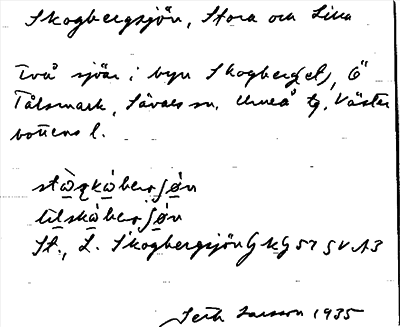 Skogbergsjön, Stora och Lilla
Två sjöar i byn Skogberg(et), Ö
Tålsmark, Sävars sn. Umeå tg, Väster
bottens l.
berʃ
lilskàberʃøn
St., L. Skogbergsjön G k G 57 SV A3
Seth Larsson 1935